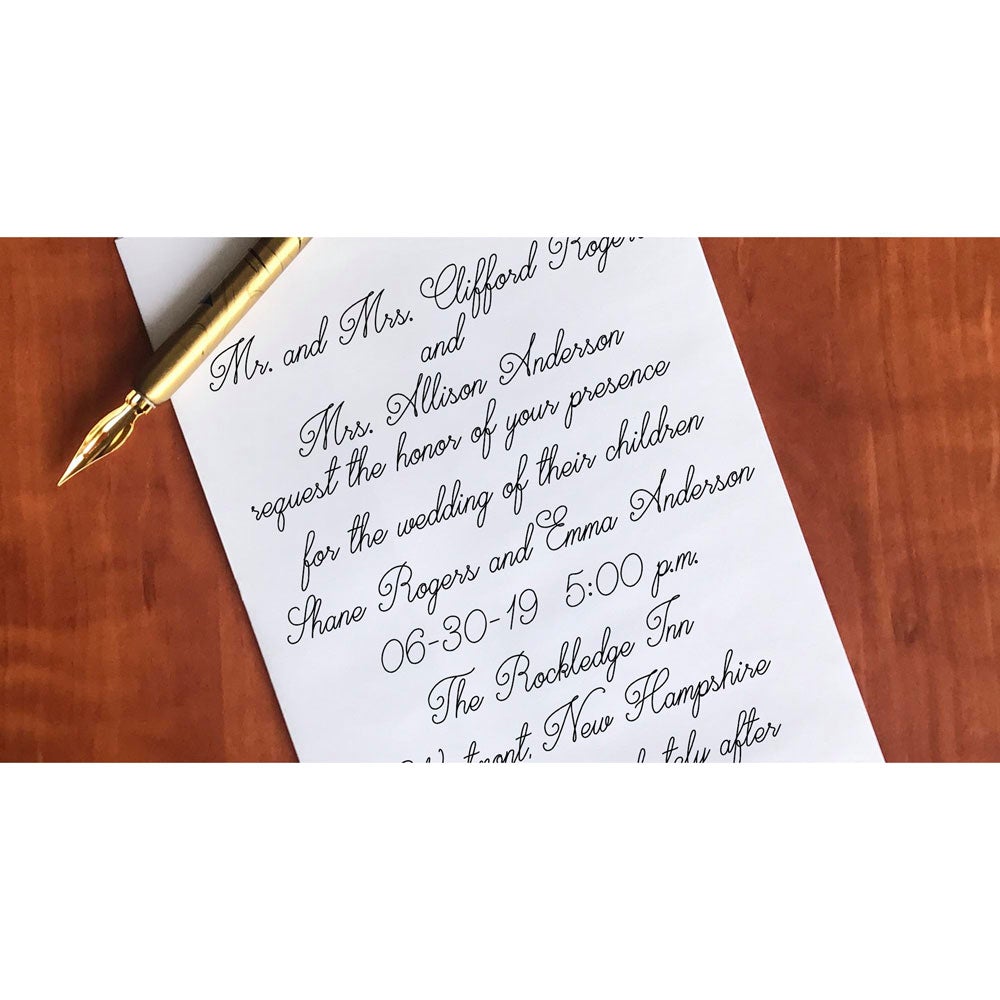 Mr. and Mrs. Clifford Rogers
and
Mrs. Allison Anderson
request the honor of your presence
for the wedding of their children
Shane Rogers and Emma Anderson
06-30-19 5:00 p.m.
The Rockledge Inn
New Hampshire
after